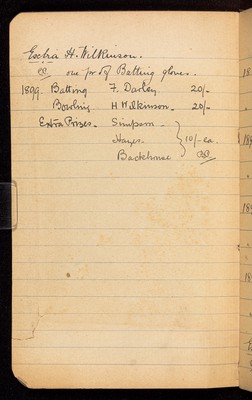 Extra H. Wilkinson.
one pr of Batting gloves.
1899 Batting F. Darley. 20/-
Bowling H Wilkinson. 20/-
Extra Prizes. Simpson
Hayes. 10/- ea.
Backhouse